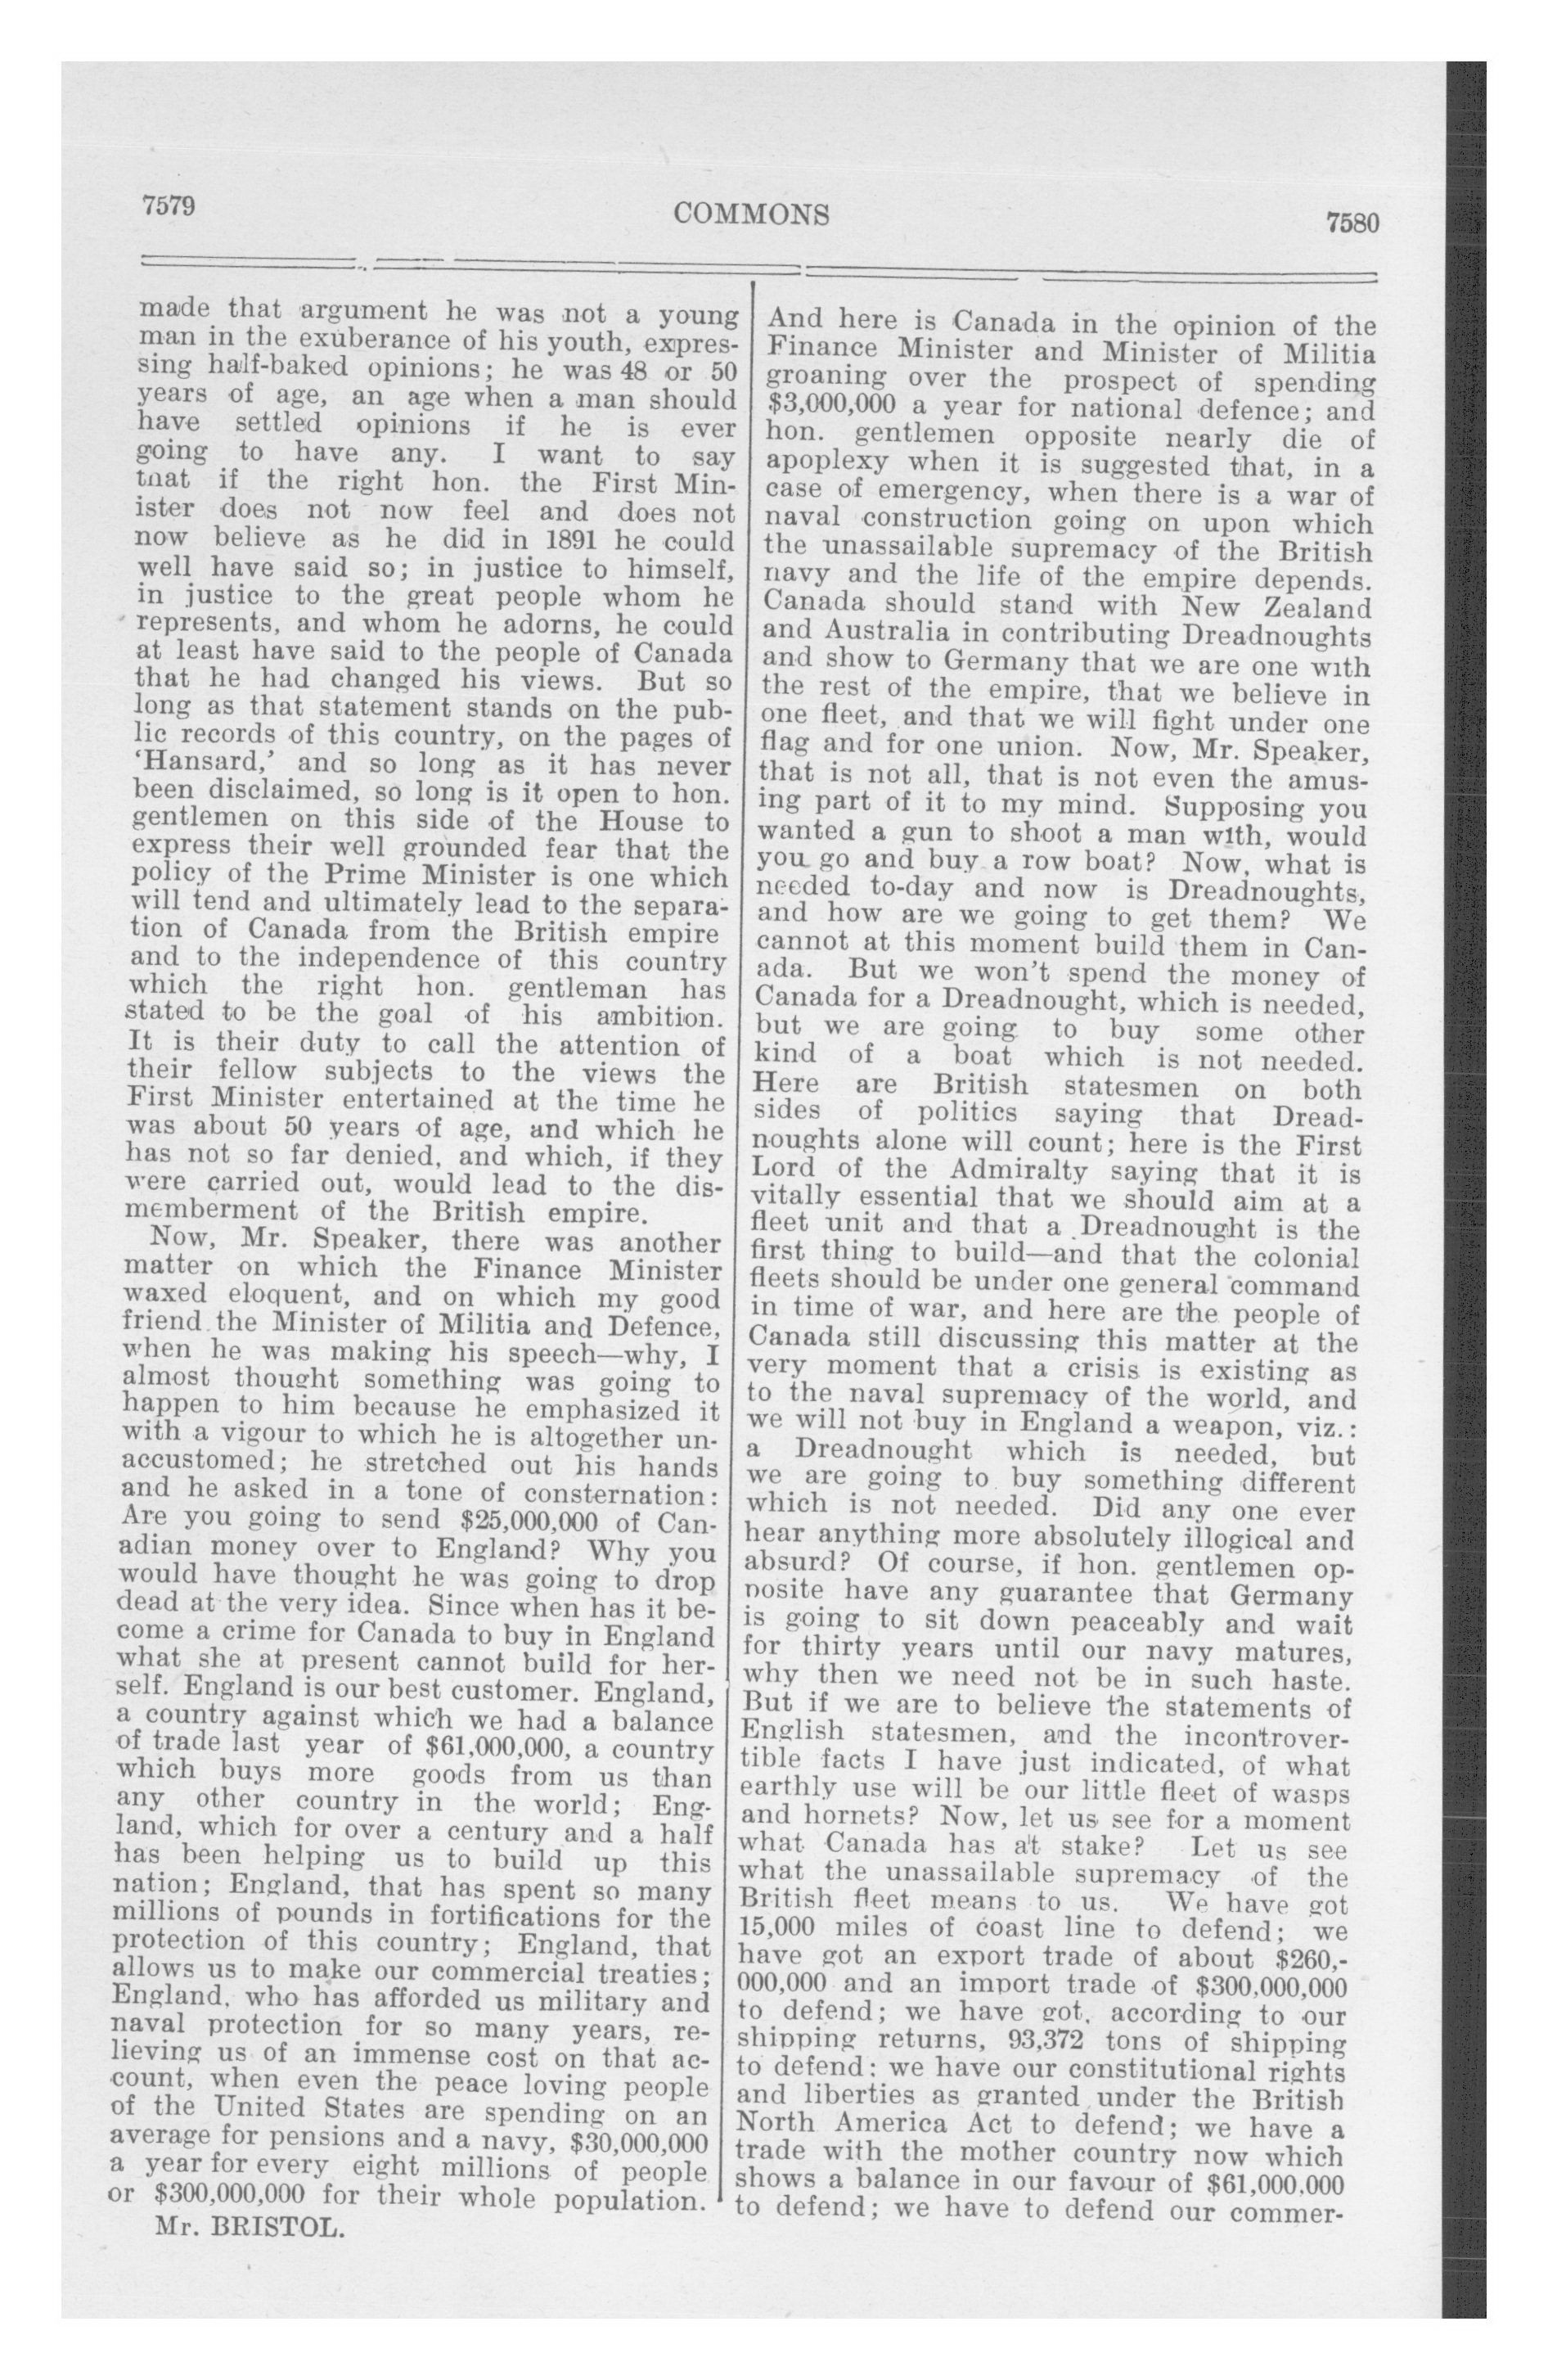 7579
COMMONS
7580
made that argument he was not a young
man in the exuberance of his youth, expres-
sing half-baked opinions; he was 48 or 50
years of age, an age when a man should
have settled opinions if he is ever
going to have any. I want to say
tnat if the right hon. the First Min-
ister does not now feel and does not
now believe as he did in 1891 he could
well have said so; in justice to himself,
in justice to the great people whom he
represents, and whom he adorns, he could
at least have said to the people of Canada
that he had changed his views. But so
long as that statement stands on the pub-
lic records of this country, on the pages of
‘Hansard,’ and so long as it has never
been disclaimed, so long is it open to hon.
gentlemen on this side of the House to
express their well grounded fear that the
policy of the Prime Minister is one which
will tend and ultimately lead to the separa-
tion of Canada from the British empire
and to the independence of this country
which the right hon. gentleman has
stated to be the goal of his ambition.
It is their duty to call the attention of
their fellow subjects to the views the
First Minister entertained at the time he
was about 50 years of age, and which he
has not so far denied, and which, if they
were carried out, would lead to the dis-
memberment of the British empire.
Now, Mr. Speaker, there was another
matter on which the Finance Minister
waxed eloquent, and on which my good
friend the Minister of Militia and Defence,
when he was making his speech—why, I
almost thought something was going to
happen to him because he emphasized it
with a vigour to which he is altogether un-
accustomed; he stretched out his hands
and he asked in a tone of consternation:
Are you going to send $25,000,000 of Can-
adian money over to England? Why you
would have thought he was going to drop
dead at the very idea. Since when has it be-
come a crime for Canada to buy in England
what she at present cannot build for her-
self. England is our best customer. England,
a country against which we had a balance
of trade last year of $61,000,000, a country
which buys more goods from us than
any other country in the world; Eng-
land, which for over a century and a half
has been helping us to build up this
nation; England, that has spent so many
millions of pounds in fortifications for the
protection of this country; England, that
allows us to make our commercial treaties;
England, who has afforded us military and
naval protection for so many years, re-
lieving us of an immense cost on that ac-
count, when even the peace loving people
of the United States are spending on an
average for pensions and a navy, $30,000,000
a year for every eight millions of people
or $300,000,000 for their whole population.
Mr. BRISTOL.
And here is Canada in the opinion of the
Finance Minister and Minister of Militia
groaning over the prospect of spending
$3,000,000 a year for national defence; and
hon. gentlemen opposite nearly die of
apoplexy when it is suggested that, in a
case of emergency, when there is a war of
naval construction going on upon which
the unassailable supremacy of the British
navy and the life of the empire depends.
Canada should stand with New Zealand
and Australia in contributing Dreadnoughts
and show to Germany that we are one with
the rest of the empire, that we believe in
one fleet, and that we will fight under one
flag and for one union. Now, Mr. Speaker,
that is not all, that is not even the amus-
ing part of it to my mind. Supposing you
wanted a gun to shoot a man with, would
you go and buy a row boat? Now, what is
needed to-day and now is Dreadnoughts,
and how are we going to get them? We
cannot at this moment build them in Can-
ada. But we won’t spend the money of
Canada for a Dreadnought, which is needed,
but we are going to buy some other
kind of a boat which is not needed.
Here are British statesmen on both
sides of politics saying that Dread-
noughts alone will count; here is the First
Lord of the Admiralty saying that it is
vitally essential that we should aim at a
fleet unit and that a Dreadnought is the
first thing to build—and that the colonial
fleets should be under one general command
in time of war, and here are the people of
Canada still discussing this matter at the
very moment that a crisis is existing as
to the naval supremacy of the world, and
we will not buy in England a weapon, viz.:
a Dreadnought which is needed, but
we are going to buy something different
which is not needed. Did any one ever
hear anything more absolutely illogical and
absurd? Of course, if hon. gentlemen op-
posite have any guarantee that Germany
is going to sit down peaceably and wait
for thirty years until our navy matures,
why then we need not be in such haste.
But if we are to believe the statements of
English statesmen, and the incontrover-
tible facts I have just indicated, of what
earthly use will be our little fleet of wasps
and hornets? Now, let us see for a moment
what Canada has at stake? Let us see
what the unassailable supremacy of the
British fleet means to us. We have got
15,000 miles of coast line to defend; we
have got an export trade of about $260,-
000,000 and an import trade of $300,000,000
to defend; we have got, according to our
shipping returns, 93,372 tons of shipping
to defend; we have our constitutional rights
and liberties as granted under the British
North America Act to defend; we have a
trade with the mother country now which
shows a balance in our favour of $61,000,000
to defend; we have to defend our commer-